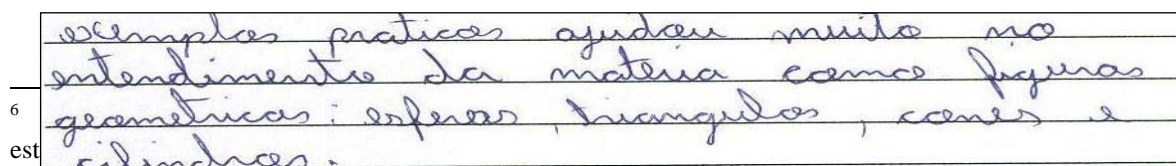 exemplos praticos ajudou muito no
entendimento da materia como figuras
6
geometricas: esferas, triangulos, cones e
est
cilindros.